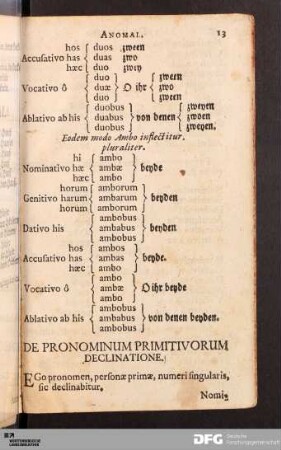 ANOMAL. 13
hos duos zween
Accusativo has duas zwo
hæc duo zwey
duo zween
Vocativo ô duæ O ihr zwo
duo zween
duobus zweyen
Ablativo ab his duabus von denen zwoen
duobus zweyen.
Eodem modo Ambo inflectitur.
pluraliter.
hi ambo
Nominativo hæ ambæ beyde
hæc ambo
horum amborum
Genitivo harum ambarum beyden
horum amborum
ambobus
Dativo his ambabus beyden
ambobus
hos ambos
Accusativo has ambas beyde.
hæc ambo
ambo
Vocativo ô ambæ O ihr beyde
ambo
ambobus
Ablativo ab his ambabus von denen beyden.
ambobus
DE PRONOMINUM PRIMITIVORUM
DECLINATIONE.
EGo pronomen, personæ primæ, numeri singularis,
sic declinabitur,
Nomi-
DFG Deutsche
Forschungsgemeinschaft